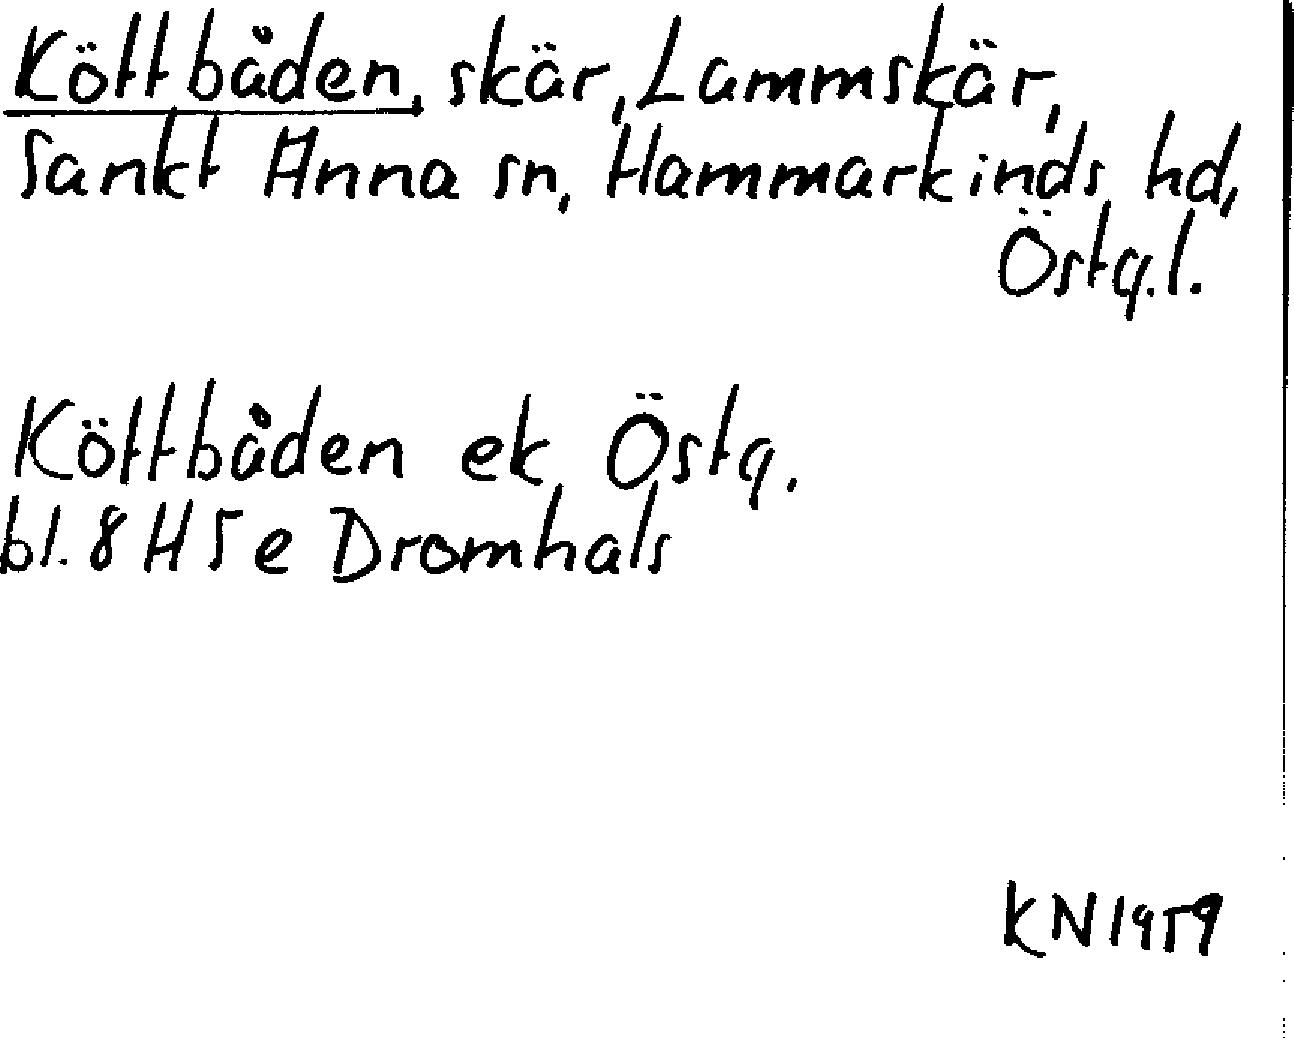 Köttbåden, skär, Lammskär,
Sankt Anna sn, Hammarkinds hd,
Östg.l.
Köttbåden ek Östg.
bl. 8 H 5 e Dromhals
KN 1959